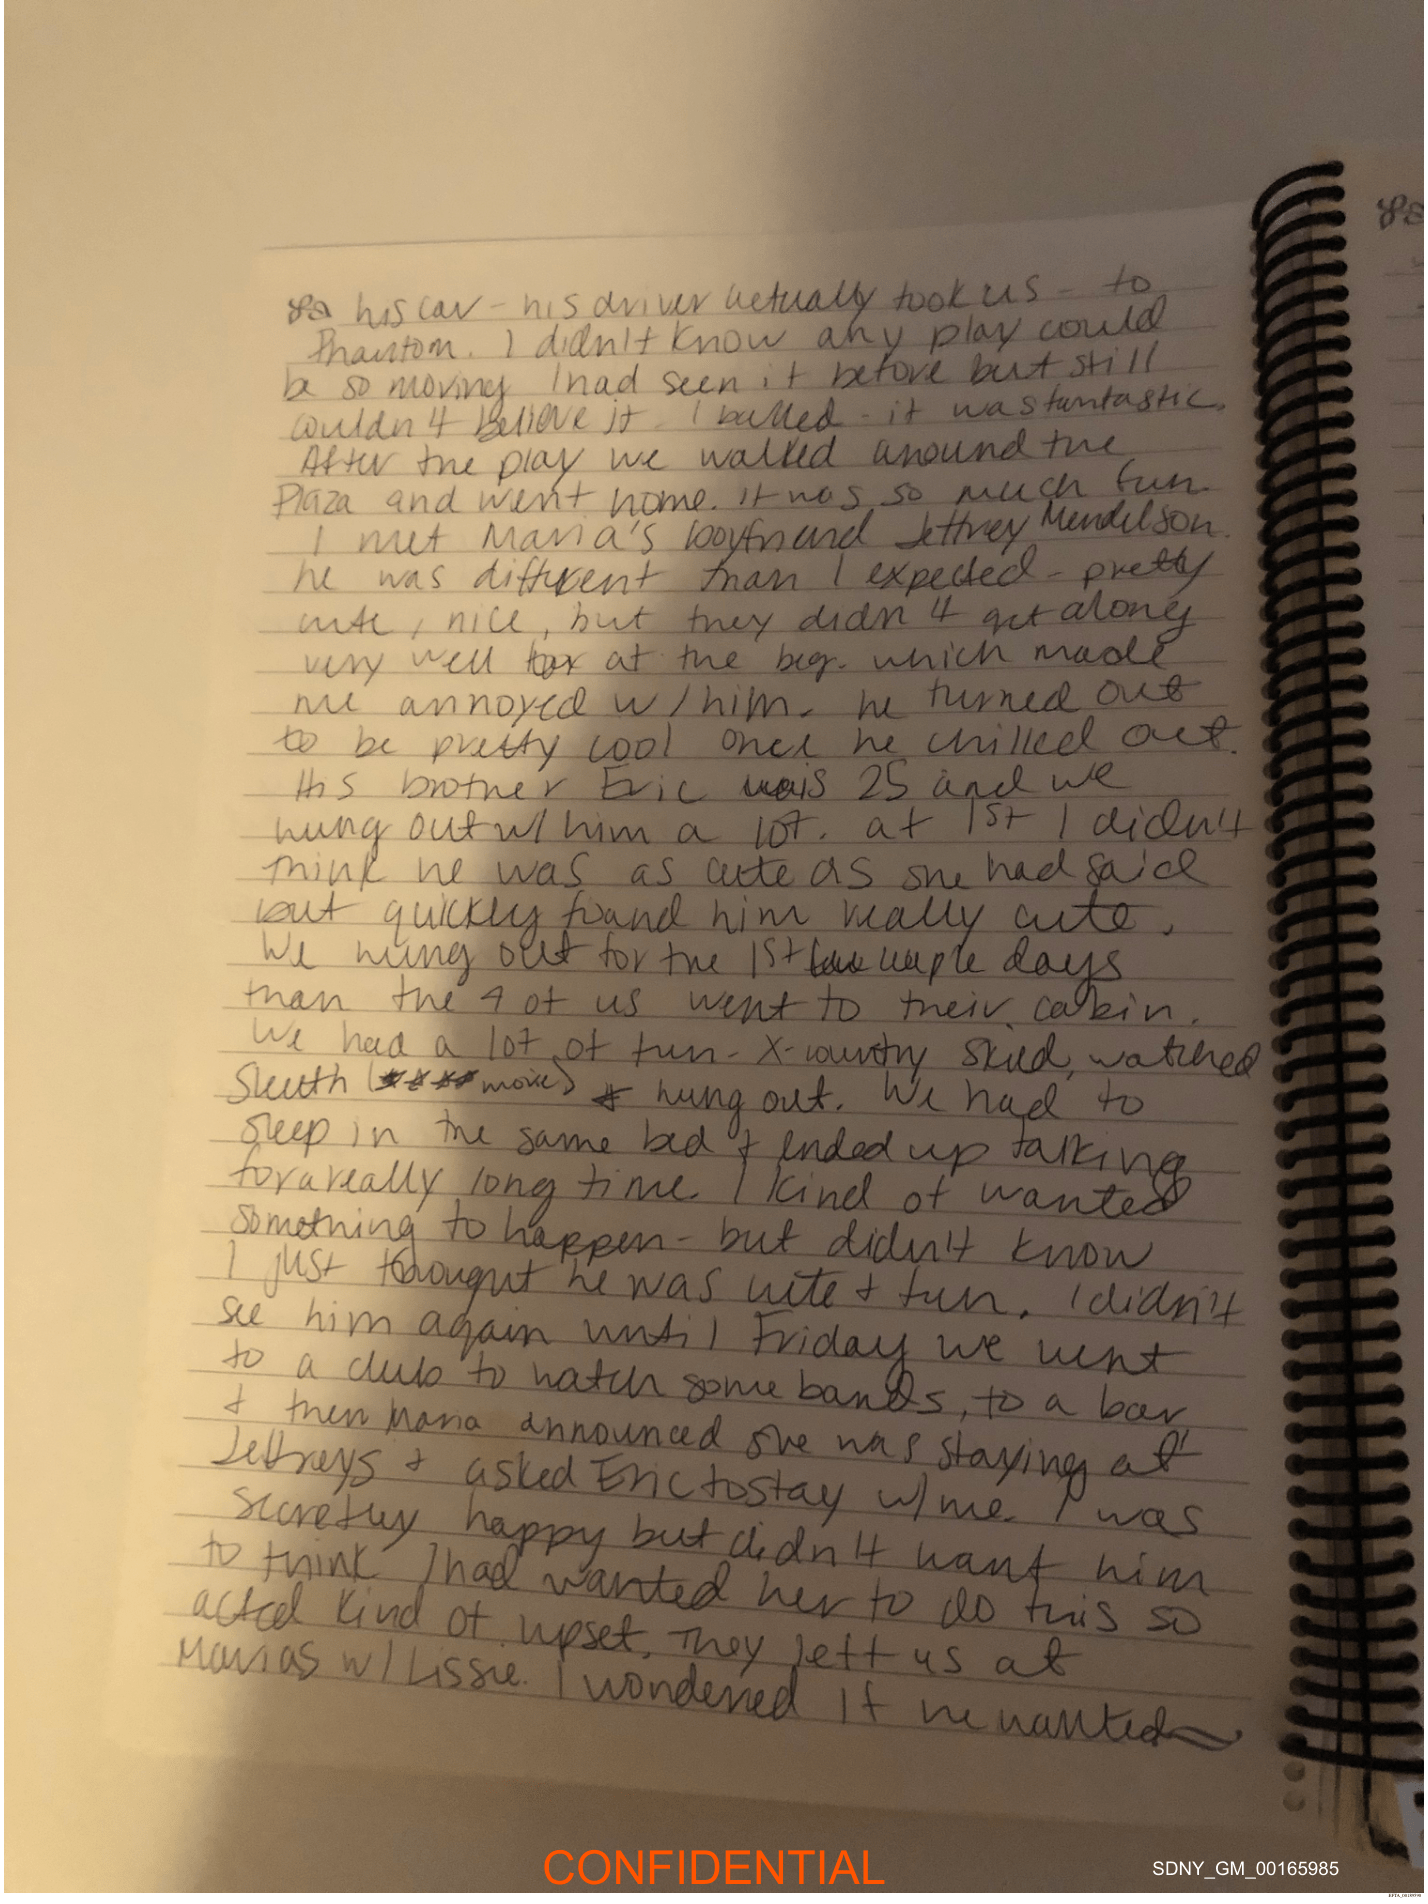 his car - his driver actually took us - to
Phantom. I didn't know any play could
be so moving I had seen it before but still
couldn't believe it - I balled - it was fantastic.
After the play we walked around the
Plaza and went home. It was so much fun.
I met Maria's boyfriend Jeffrey Mendelson.
he was different than I expected - pretty
cute, nice, but they didn't get along
very well at the beg. which made
me annoyed w/ him. he turned out
to be pretty cool once he chilled out.
His brother Eric was 25 and we
hung out w/ him a lot. at 1st I didn't
think he was as cute as she had said
but quickly found him really cute.
We hung out for the 1st couple days
than the 4 of us went to their cabin.
We had a lot of fun - X-country skied, watched
Sleuth (**** movie) & hung out. We had to
sleep in the same bed & ended up talking
for a really long time. I kind of wanted
something to happen - but didn't know
I just thought he was cute & fun. I didn't
see him again until Friday we went
to a club to watch some bands, to a bar
& then Maria announced she was staying at
Jeffreys & asked Eric to stay w/ me. I was
secretly happy but didn't want him
to think I had wanted her to do this so
acted kind of upset. They left us at
Marias w/ Lissie. I wondered if he wanted
CONFIDENTIAL
SDNY_GM_00165985